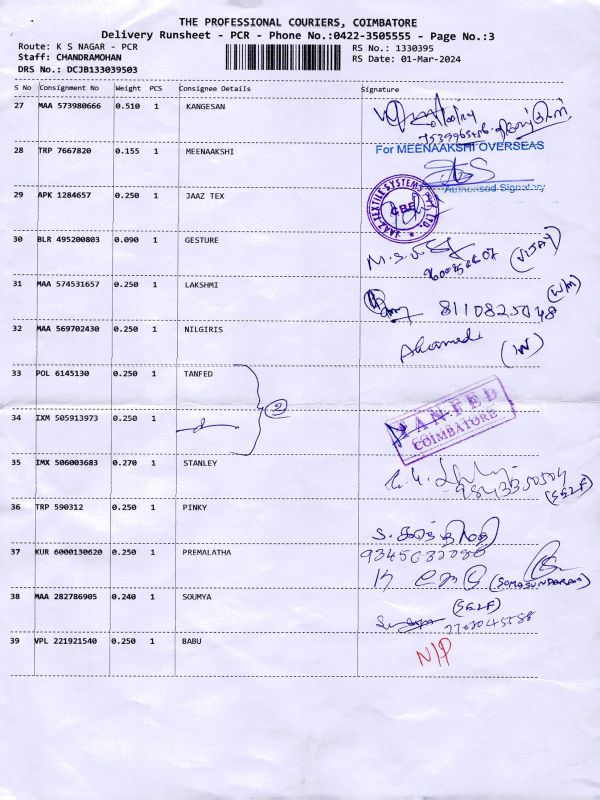 THE PROFESSIONAL COURIERS, COIMBATORE
Delivery Runsheet - PCR - Phone No.:0422-3505555 - Page No.:3
Route: K S NAGAR - PCR
RS No.: 1330395
Staff: CHANDRAMOHAN
RS Date: 01-Mar-2024
DRS No.: DCJB133039503
S No Consignment No Weight PCS Consignee Details Signature
27 MAA 573980666 0.510 1 KANGESAN
28 TRP 7667820 0.155 1 MEENAAKSHI For MEENAAKSHI OVERSEAS
Authorised Signatory
29 APK 1284657 0.250 1 JAAZ TEX JAAZ TEXTILE SYSTEMS PVT. LTD. CBE
30 BLR 495200803 0.090 1 GESTURE
31 MAA 574531657 0.250 1 LAKSHMI 8110825048
32 MAA 569702430 0.250 1 NILGIRIS
33 POL 6145130 0.250 1 TANFED 2
34 IXM 505913973 0.250 1 TANFED COIMBATORE
35 IMX 506003683 0.270 1 STANLEY 9843350504 (SELF)
36 TRP 590312 0.250 1 PINKY
37 KUR 6000130620 0.250 1 PREMALATHA (SOMASUNDARAM)
38 MAA 282786905 0.240 1 SOUMYA (SELF)
39 VPL 221921540 0.250 1 BABU N/P